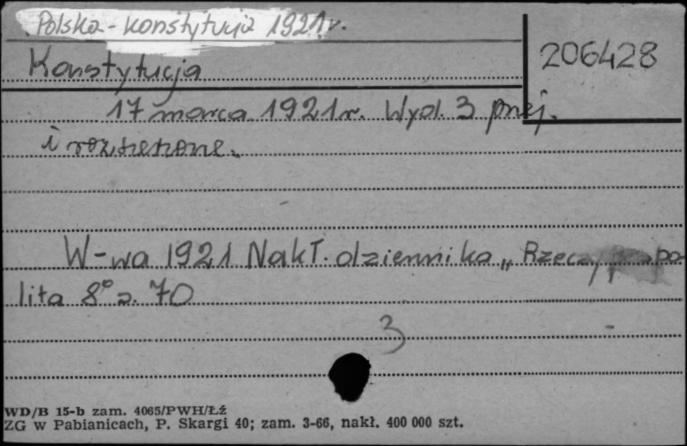 Polska - konstytucja 1921 r.
206428
Konstytucja
17 marca 1921 r. Wyd. 3 przej.
i rozszerzone.
W-wa 1921 Nakł. dziennika „Rzeczypospo
lita 8° s. 70
3
WD/B 15-b zam. 4065/PWH/Łź
ZG w Pabianicach, P. Skargi 40; zam. 3-66, nakł. 400 000 szt.